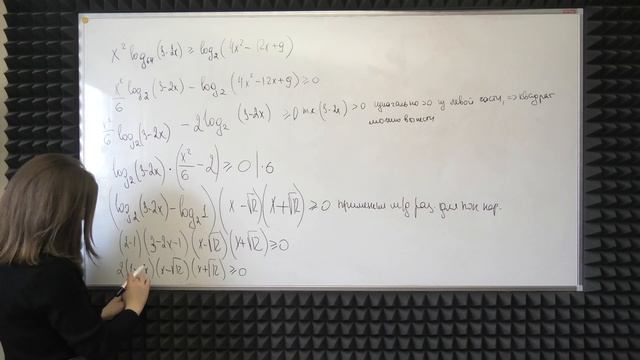 x² log₆₄(3-2x) ≥ log₂(4x²-12x+9)
x²/6 log₂(3-2x) - log₂(4x²-12x+9) ≥ 0
x²/6 log₂(3-2x) - 2log₂(3-2x) ≥ 0 т.к (3-2x) > 0 изначально из левой части, ⇒ квадрат
можно
log₂(3-2x)·(x²/6 - 2) ≥ 0 |·6
(log₂(3-2x) - log₂1)(x-√12)(x+√12) ≥ 0 применим м/д рац. для лог нер.
(2-1)(3-2x-1)(x-√12)(x+√12) ≥ 0
2( x)(x-√12)(x+√12) ≥ 0